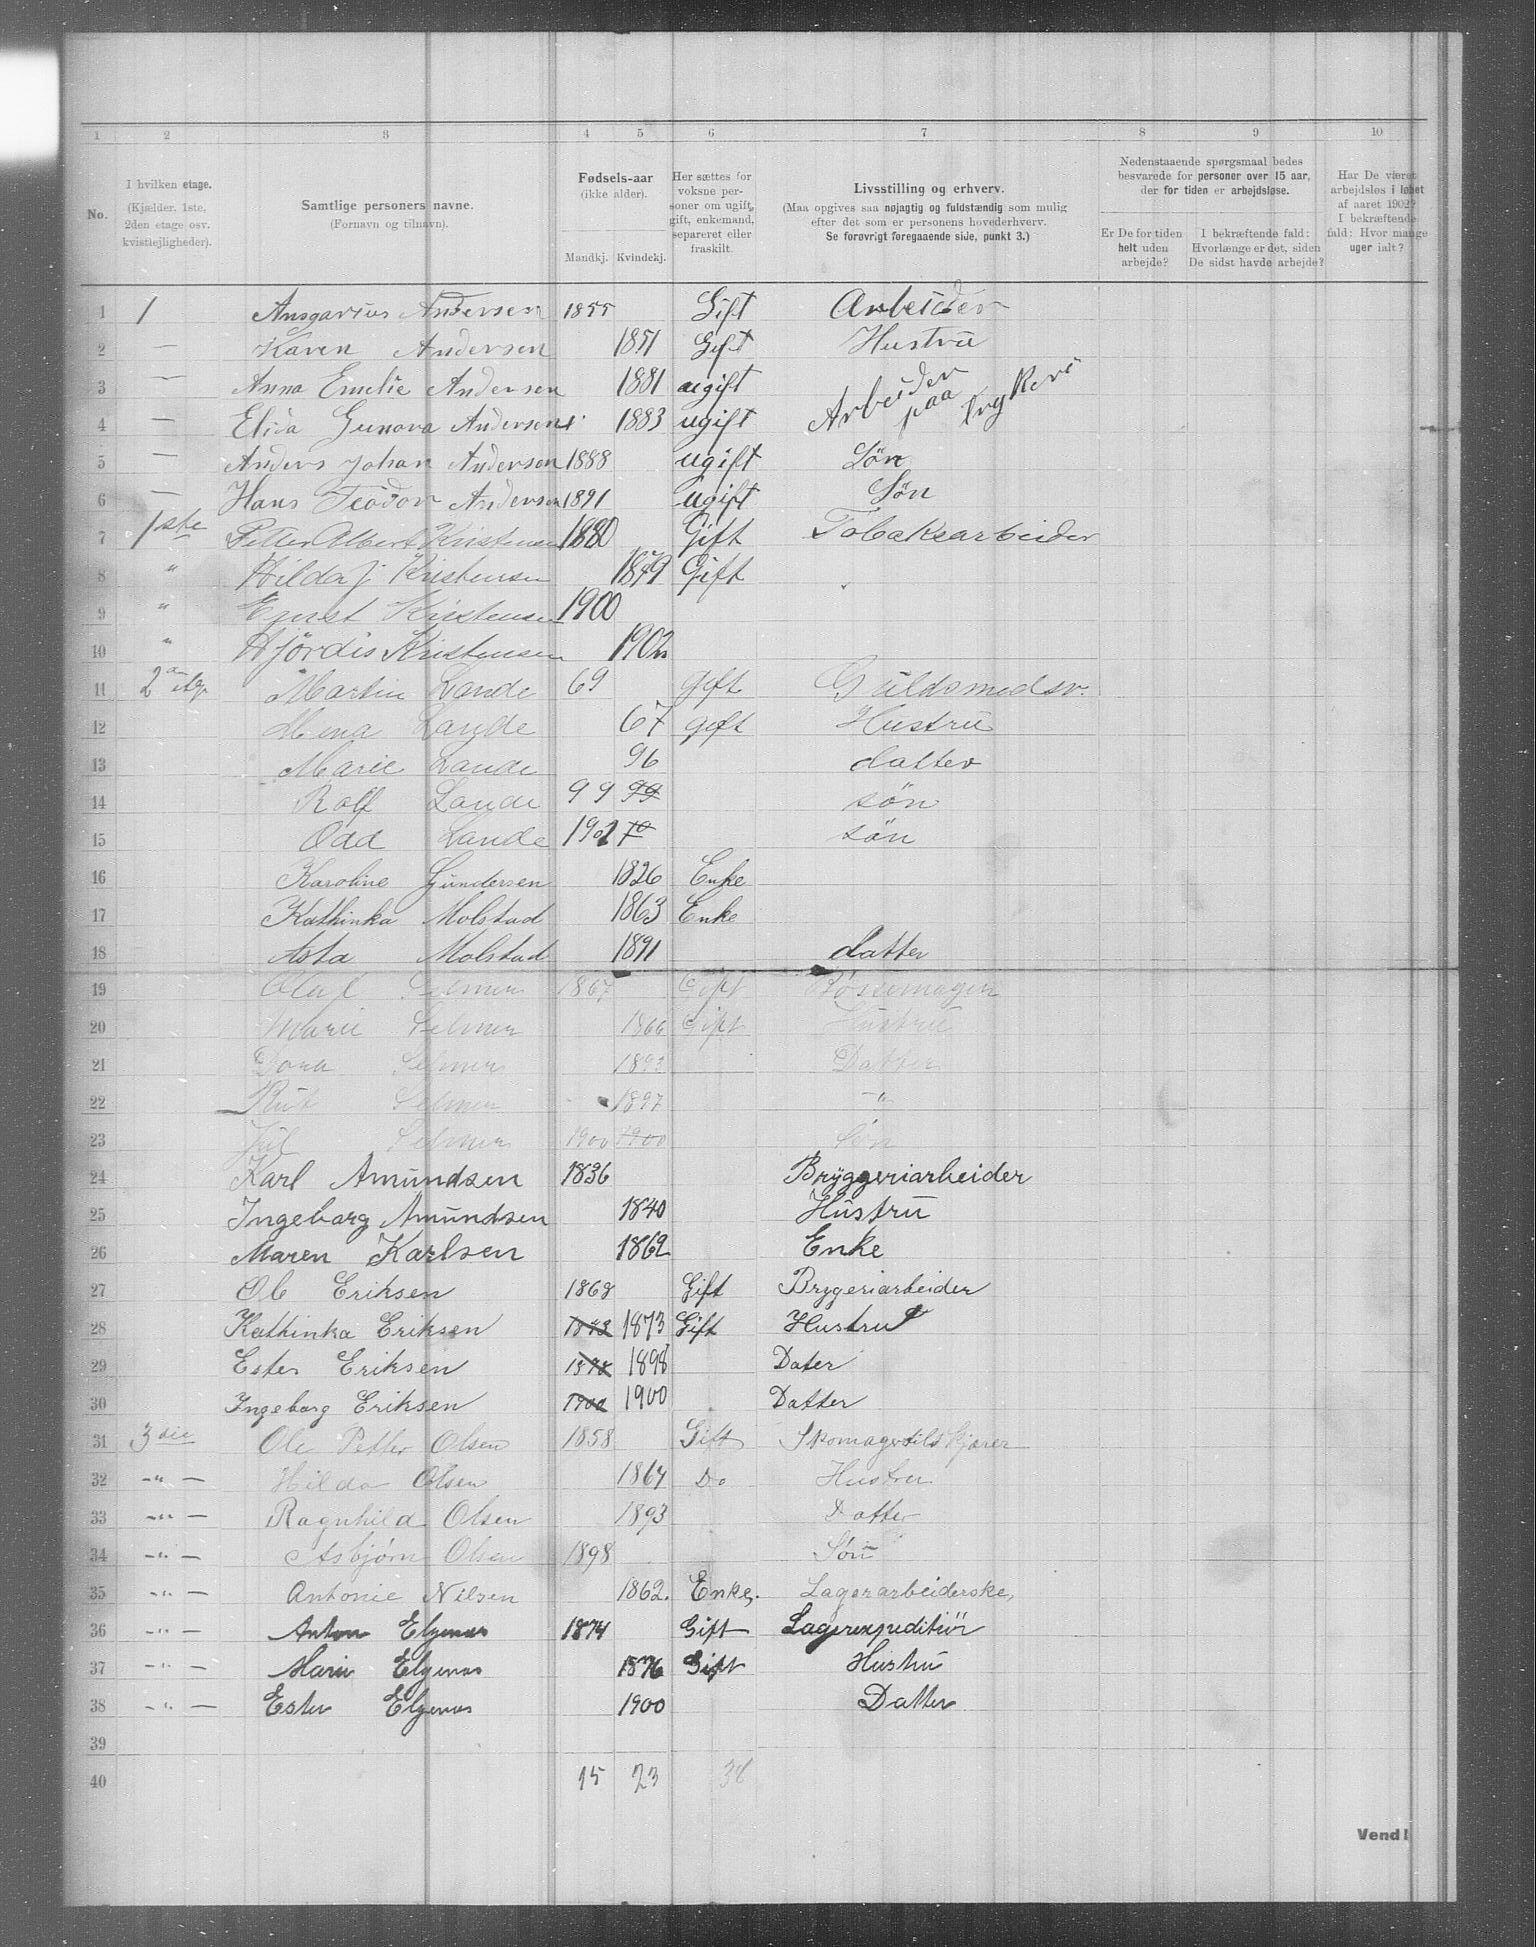 1 2 3 4 5 6 7 8 9 10
No.
I hvilken etage.
(Kjælder. 1ste, 2den etage osv. kvistlejligheder).
Samtlige personers navne.
(Fornavn og tilnavn).
Fødsels-aar
(ikke alder).
Mandkj. Kvindekj.
Her sættes for voksne personer om ugift, gift, enkemand, separeret eller fraskilt.
Livsstilling og erhverv.
(Maa opgives saa nøjagtig og fuldstændig som mulig efter det som er personens hovederhverv.
Se forøvrigt foregaaende side, punkt 3.)
Nedenstaaende spørgsmaal bedes besvarede for personer over 15 aar, der for tiden er arbejdsløse.
Er De for tiden helt uden arbejde?
I bekræftende fald: Hvorlænge er det, siden De sidst havde arbejde?
Har De været arbejdsløs i løbet af aaret 1902? I bekræftende fald: Hvor mange uger ialt?
1 1 Ansgarius Andersen 1855 Gift Arbeider
2 — Karen Andersen 1851 Gift Hustru
3 — Anna Emelie Andersen 1881 ugift Arbeider
4 — Elida Gunova Andersen 1883 ugift paa Trykkeri
5 — Anders Johan Andersen 1888 ugift Søn
6 — Hans Teodor Andersen 1891 ugift Søn
7 1ste Petter Albert Kristensen 1880 Gift Tobaksarbeider
8 " Hilda J. Kristensen 1879 Gift
9 " Ernst Kristensen 1900
10 " Hjördis Kristensen 1902
11 2 Martin Lande 69 gift Guldsmedsv.
12 Mina Lande 67 gift Hustru
13 Marie Lande 96 datter
14 Rolf Lande 99 99 søn
15 Odd Lande 1901 søn
16 Karoline Gundersen 1826 Enke
17 Kathinka Molstad 1863 Enke
18 Asta Molstad 1891 datter
19 Olaf Selmer 1867 Gift Bøssemager
20 Marie Selmer 1866 Gift Hustru
21 Dora Selmer 1893 Datter
22 Rut Selmer 1897 — " —
23 Selmer 1900 1900 Søn
24 Karl Amundsen 1836 Bryggeriarbeider
25 Ingeborg Amundsen 1840 Hustru
26 Maren Karlsen 1862 Enke
27 Ole Eriksen 1868 Gift Brygeriarbeider
28 Kathinka Eriksen 1873 1873 Gift Hustru
29 Ester Eriksen 1898 1898 Dater
30 Ingeborg Eriksen 1900 1900 Datter
31 3die Ole Petter Olsen 1858 Gift Skomager tilskjærer
32 — " — Hilda Olsen 1867 Do Hustru
33 — " — Ragnhild Olsen 1893 Datter
34 — " — Asbjørn Olsen 1898 Søn
35 — " — Antonie Nilsen 1862. Enke. Lagerarbeiderske
36 — " — Anton Elgenas 1874 Gift Lagerexpeditiør
37 — " — Marie Elgenas 1876 Gift Hustru
38 — " — Ester Elgenas 1900 Datter
39
40 15 23 38
Vend!